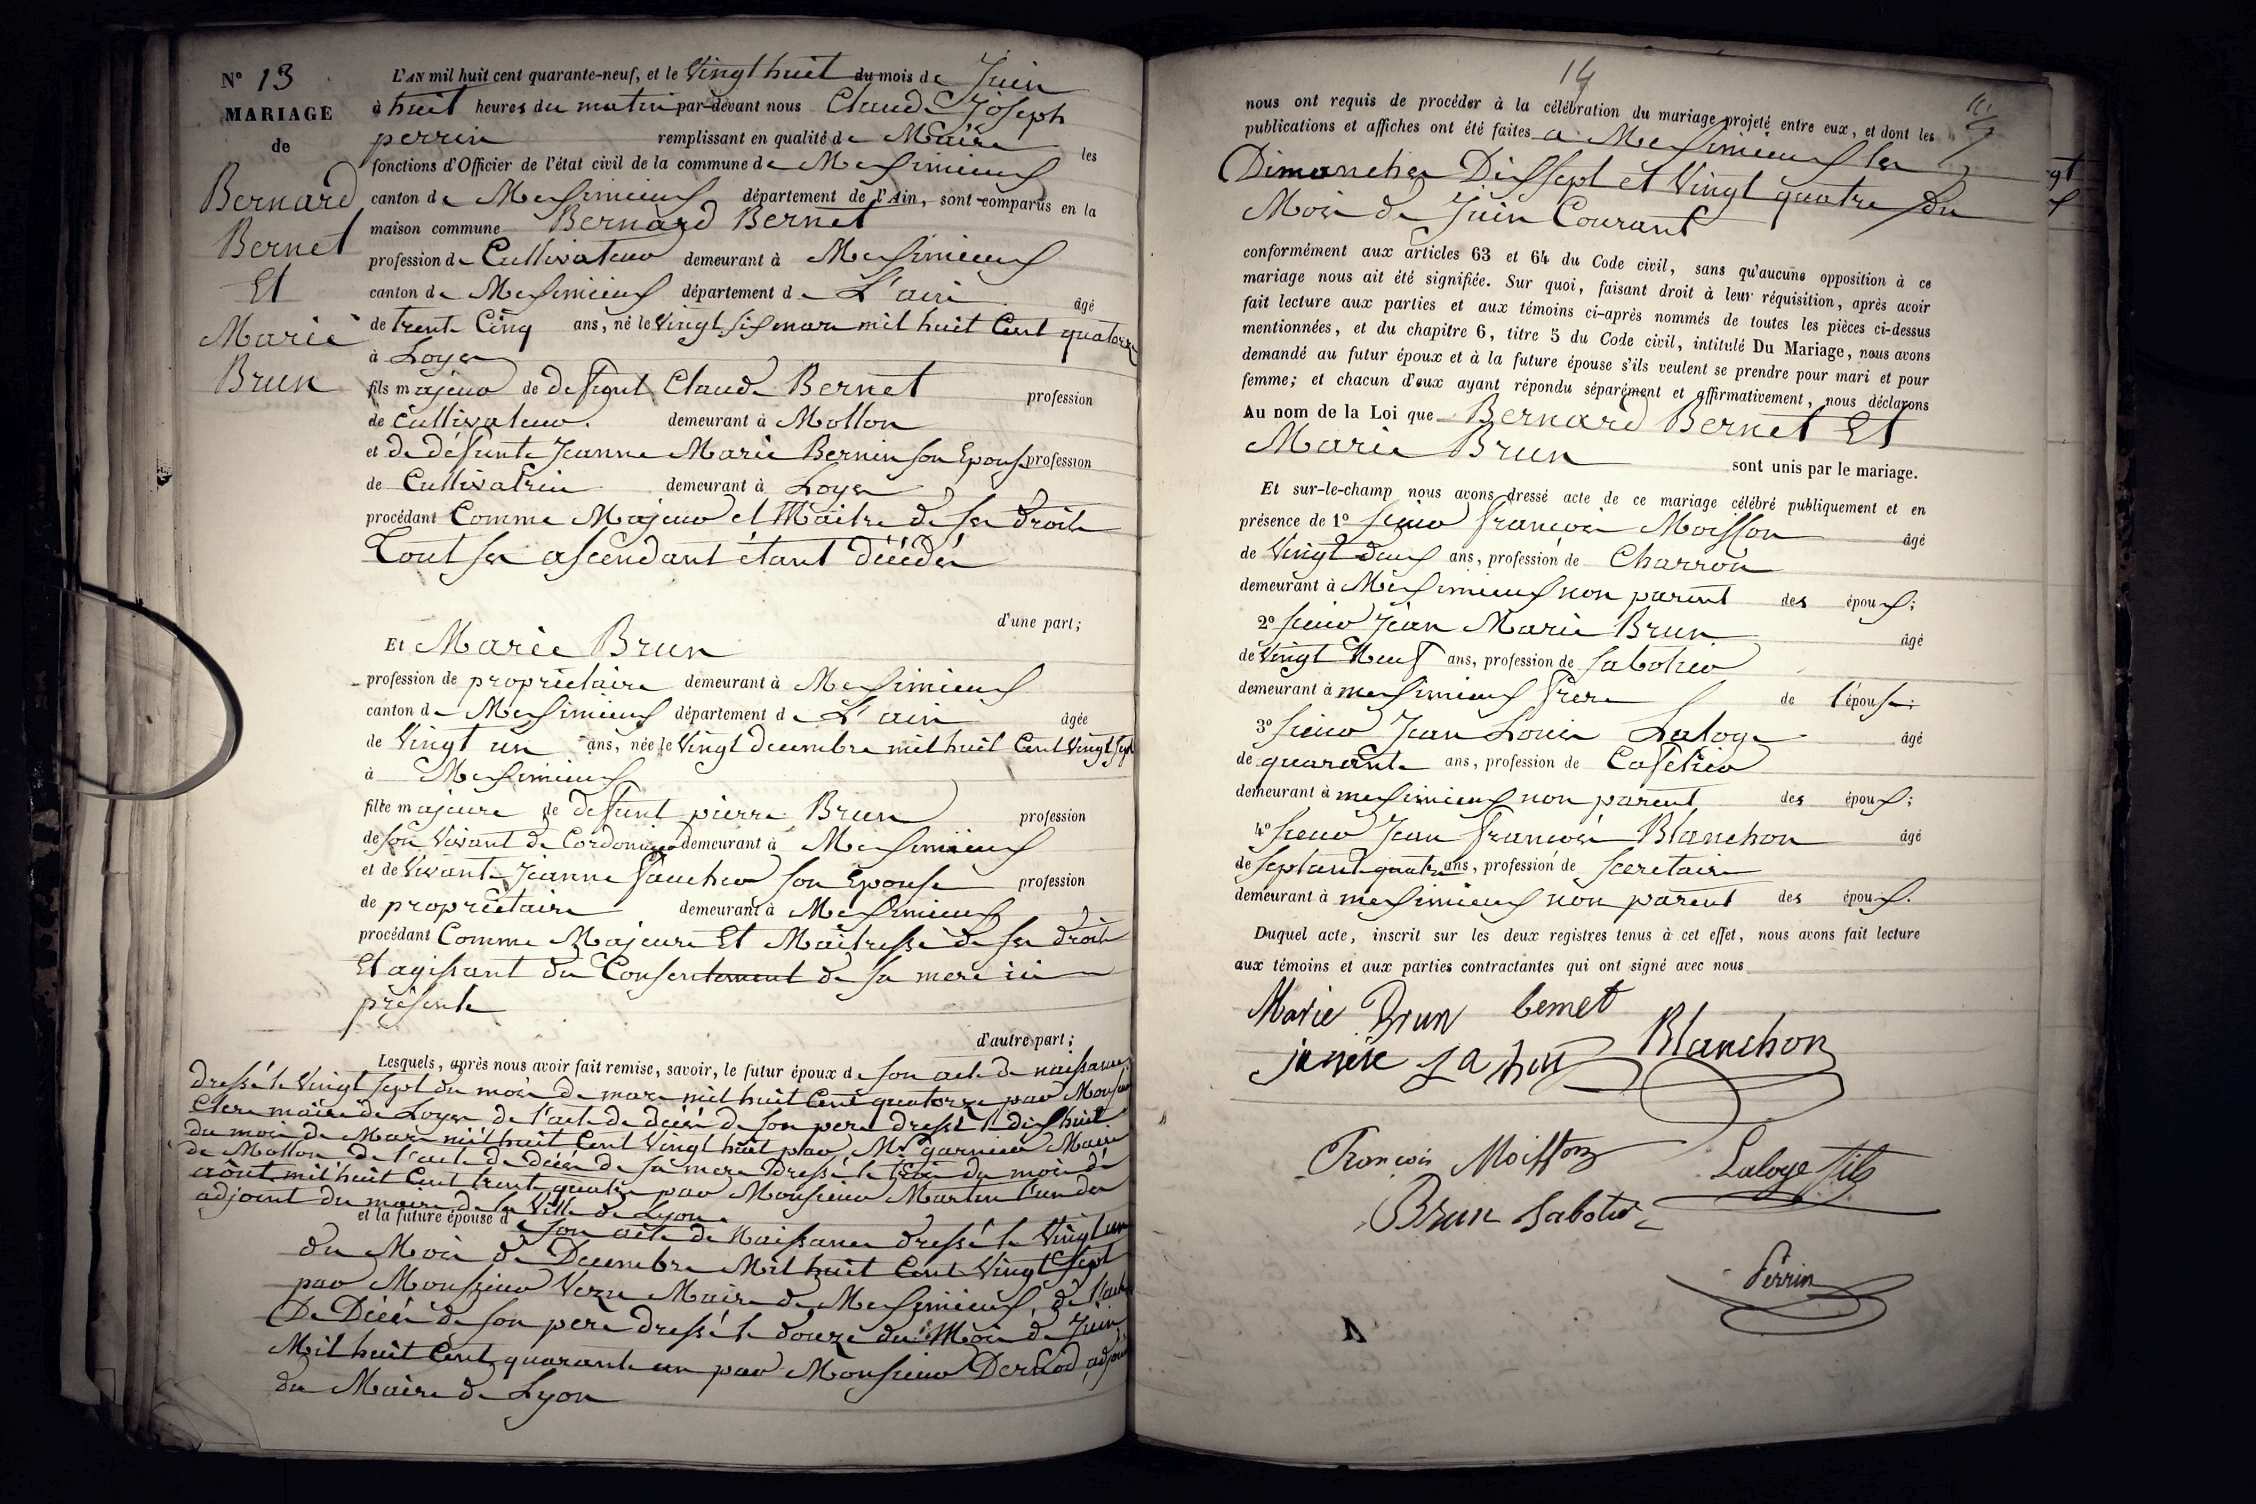 N° 13
MARIAGE
de
Bernard
Bernet
Et
Marie
Brun
L'AN mil huit cent quarante-neuf, et le Vingt huit du mois de Juin
à huit heures du matin par-devant nous Claude Joseph
perrin remplissant en qualité de Maire les
fonctions d'Officier de l'état civil de la commune de Meximieux
canton de Meximieux département de l'Ain, sont comparus en la
maison commune Bernard Bernet
profession de Cultivateur demeurant à Meximieux
canton de Meximieux département de L'ain âgé
de trente Cinq ans, né le Vingt six mars mil huit Cent quatorze
à Loyes
fils majeur de defunt Claude Bernet profession
de Cultivateur demeurant à Mollon
et de défunte Jeanne Marie Bernin son Epouse profession
de Cultivatrice demeurant à Loyes
procédant Comme Majeur et Maitre de ses droits
Tout ses ascendant étant décédés
d'une part;
Et Marie Brun
profession de propriétaire demeurant à Meximieux
canton de Meximieux département de L'ain âgée
de Vingt un ans, née le Vingt decembre mil huit Cent Vingt sept
à Meximieux
fille majeure de defunt pierre Brun profession
de son Vivant de Cordonier demeurant à Meximieux
et de Vivante Jeanne Faucher son Epouse profession
de propriétaire demeurant à Meximieux
procédant Comme Majeure Et Maitresse de ses droits
Et agissant du Consentement de sa mere ici
présente
d'autre part;
Lesquels, après nous avoir fait remise, savoir, le futur époux de son acte de naissance
dressé le Vingt sept du mois de mars mil huit Cent quatorze par Monsieur
Clere maire de Loyes de l'acte de décès de son pere dressé le dix huit
du mois de Mars mil huit Cent Vingt huit par Mr garnier Maire
de Mollon de l'acte de décès de sa mere dressé le trois du mois de
aout mil huit Cent trente quatre par Monsieur Martin l'un des
adjoint du maire de la Ville de Lyon
et la future épouse de son acte de Naissance dressé le Vingt un
du Mois de Decembre Mil huit Cent Vingt Sept
par Monsieur Vezu Maire de Meximieux, de l'acte
De Décès de son pere dressé le douze du Mois de Juin
Mil huit Cent quarante un par Monsieur adjoint
du Maire de Lyon
14
nous ont requis de procéder à la célébration du mariage projeté entre eux, et dont les
publications et affiches ont été faites a Meximieux les
Dimanches Dix sept et Vingt quatre du
Mois de Juin Courant
conformément aux articles 63 et 64 du Code civil, sans qu'aucune opposition à ce
mariage nous ait été signifiée. Sur quoi, faisant droit à leur réquisition, après avoir
fait lecture aux parties et aux témoins ci-après nommés de toutes les pièces ci-dessus
mentionnées, et du chapitre 6, titre 5 du Code civil, intitulé Du Mariage, nous avons
demandé au futur époux et à la future épouse s'ils veulent se prendre pour mari et pour
femme; et chacun d'eux ayant répondu séparément et affirmativement, nous déclarons
Au nom de la Loi que Bernard Bernet Et
Marie Brun sont unis par le mariage.
Et sur-le-champ nous avons dressé acte de ce mariage célébré publiquement et en
présence de 1° sieur francois Moisson âgé
de Vingt deux ans, profession de Charron
demeurant à Meximieux non parent des époux;
2° sieur Jean Marie Brun âgé
de Vingt Neuf ans, profession de sabotier
demeurant à meximieux frere de l'épouse;
3° sieur Jean Louis Laloge âgé
de quarante ans, profession de Cafetier
demeurant à meximieux non parent des époux;
4° sieur Jean francois Blanchon âgé
de septante quatre ans, profession de secretaire
demeurant à meximieux non parent des époux.
Duquel acte, inscrit sur les deux registres tenus à cet effet, nous avons fait lecture
aux témoins et aux parties contractantes qui ont signé avec nous
Marie Brun bernet
Blanchon
François Moisson
Laloge fils
Brun Sabotier
Perrin